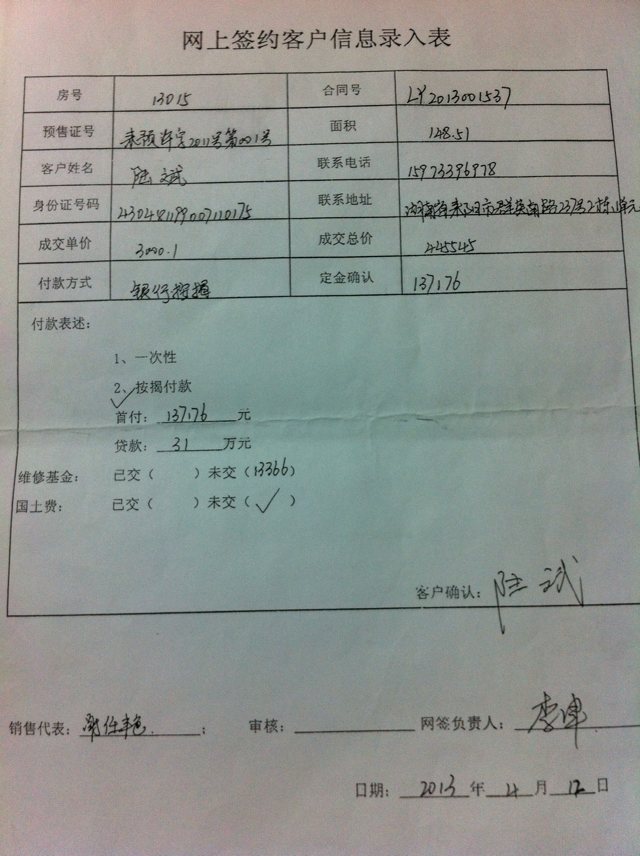 网上签约客户信息录入表
房号 13015 合同号 LY2013001537
预售证号 耒预售字2011号第001号 面积 148.51
客户姓名 陆斌 联系电话 15973396978
身份证号码 430481199007110175 联系地址 湖南省耒阳市 南路237号2栋1单元
成交单价 3000.1 成交总价 445545
付款方式 银行按揭 定金确认 137176
付款表述：
1、一次性
2、按揭付款
首付：137176元
贷款：31万元
维修基金： 已交（ ）未交（13366）
国土费： 已交（ ）未交（✓）
客户确认：陆斌
销售代表： ；审核： 网签负责人：李
日期：2013年4月12日